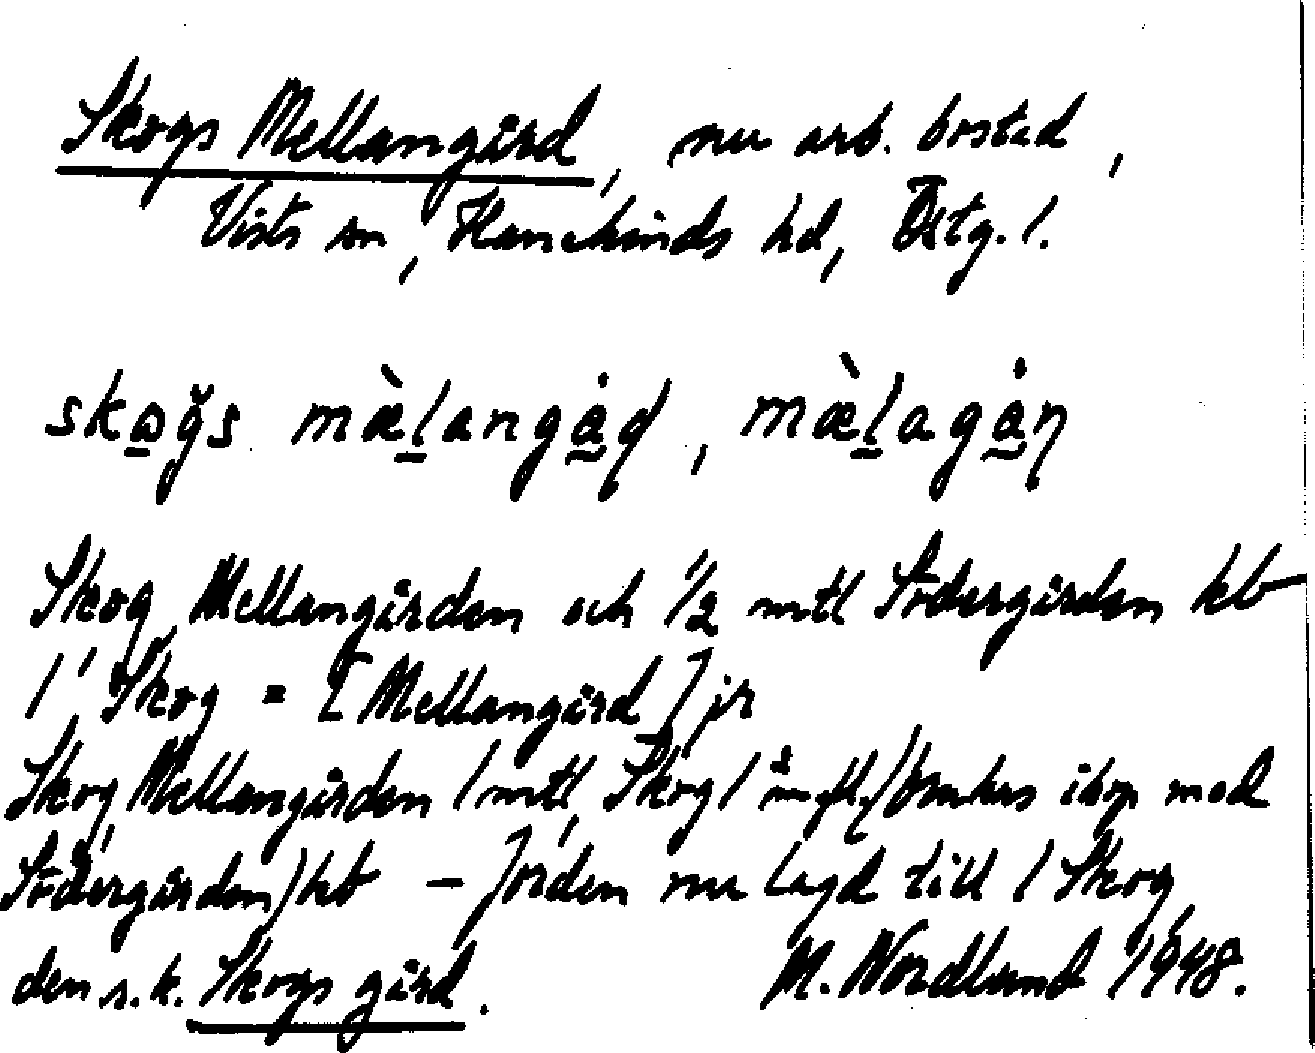 Skogs Mellangård, nu arb. bostad,
Vists sn, Hanekinds hd, Östg. l.
skɷgs mæ̀langåḍ, mæ̀lagåṇ
Skog Mellangården och 1/2 mtl Södergården kb
1 Skog = [Mellangård] jr
Skog Mellangården 1 mtl, Skog 1 (brukas ihop med
Södergården) kb – Jorden nu lagd till 1 Skog,
den s.k. Skogs gård. M. Nordlund 1948.